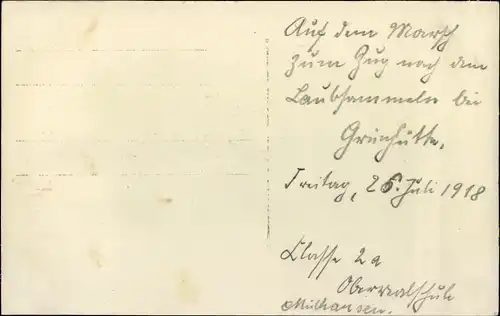 Auf dem Marsch
zum Zug nach dem
Laubsammeln bei
Grünhütte,
Freitag, 26. Juli 1918
Classe 2a
Oberrealschule
Mülhausen.